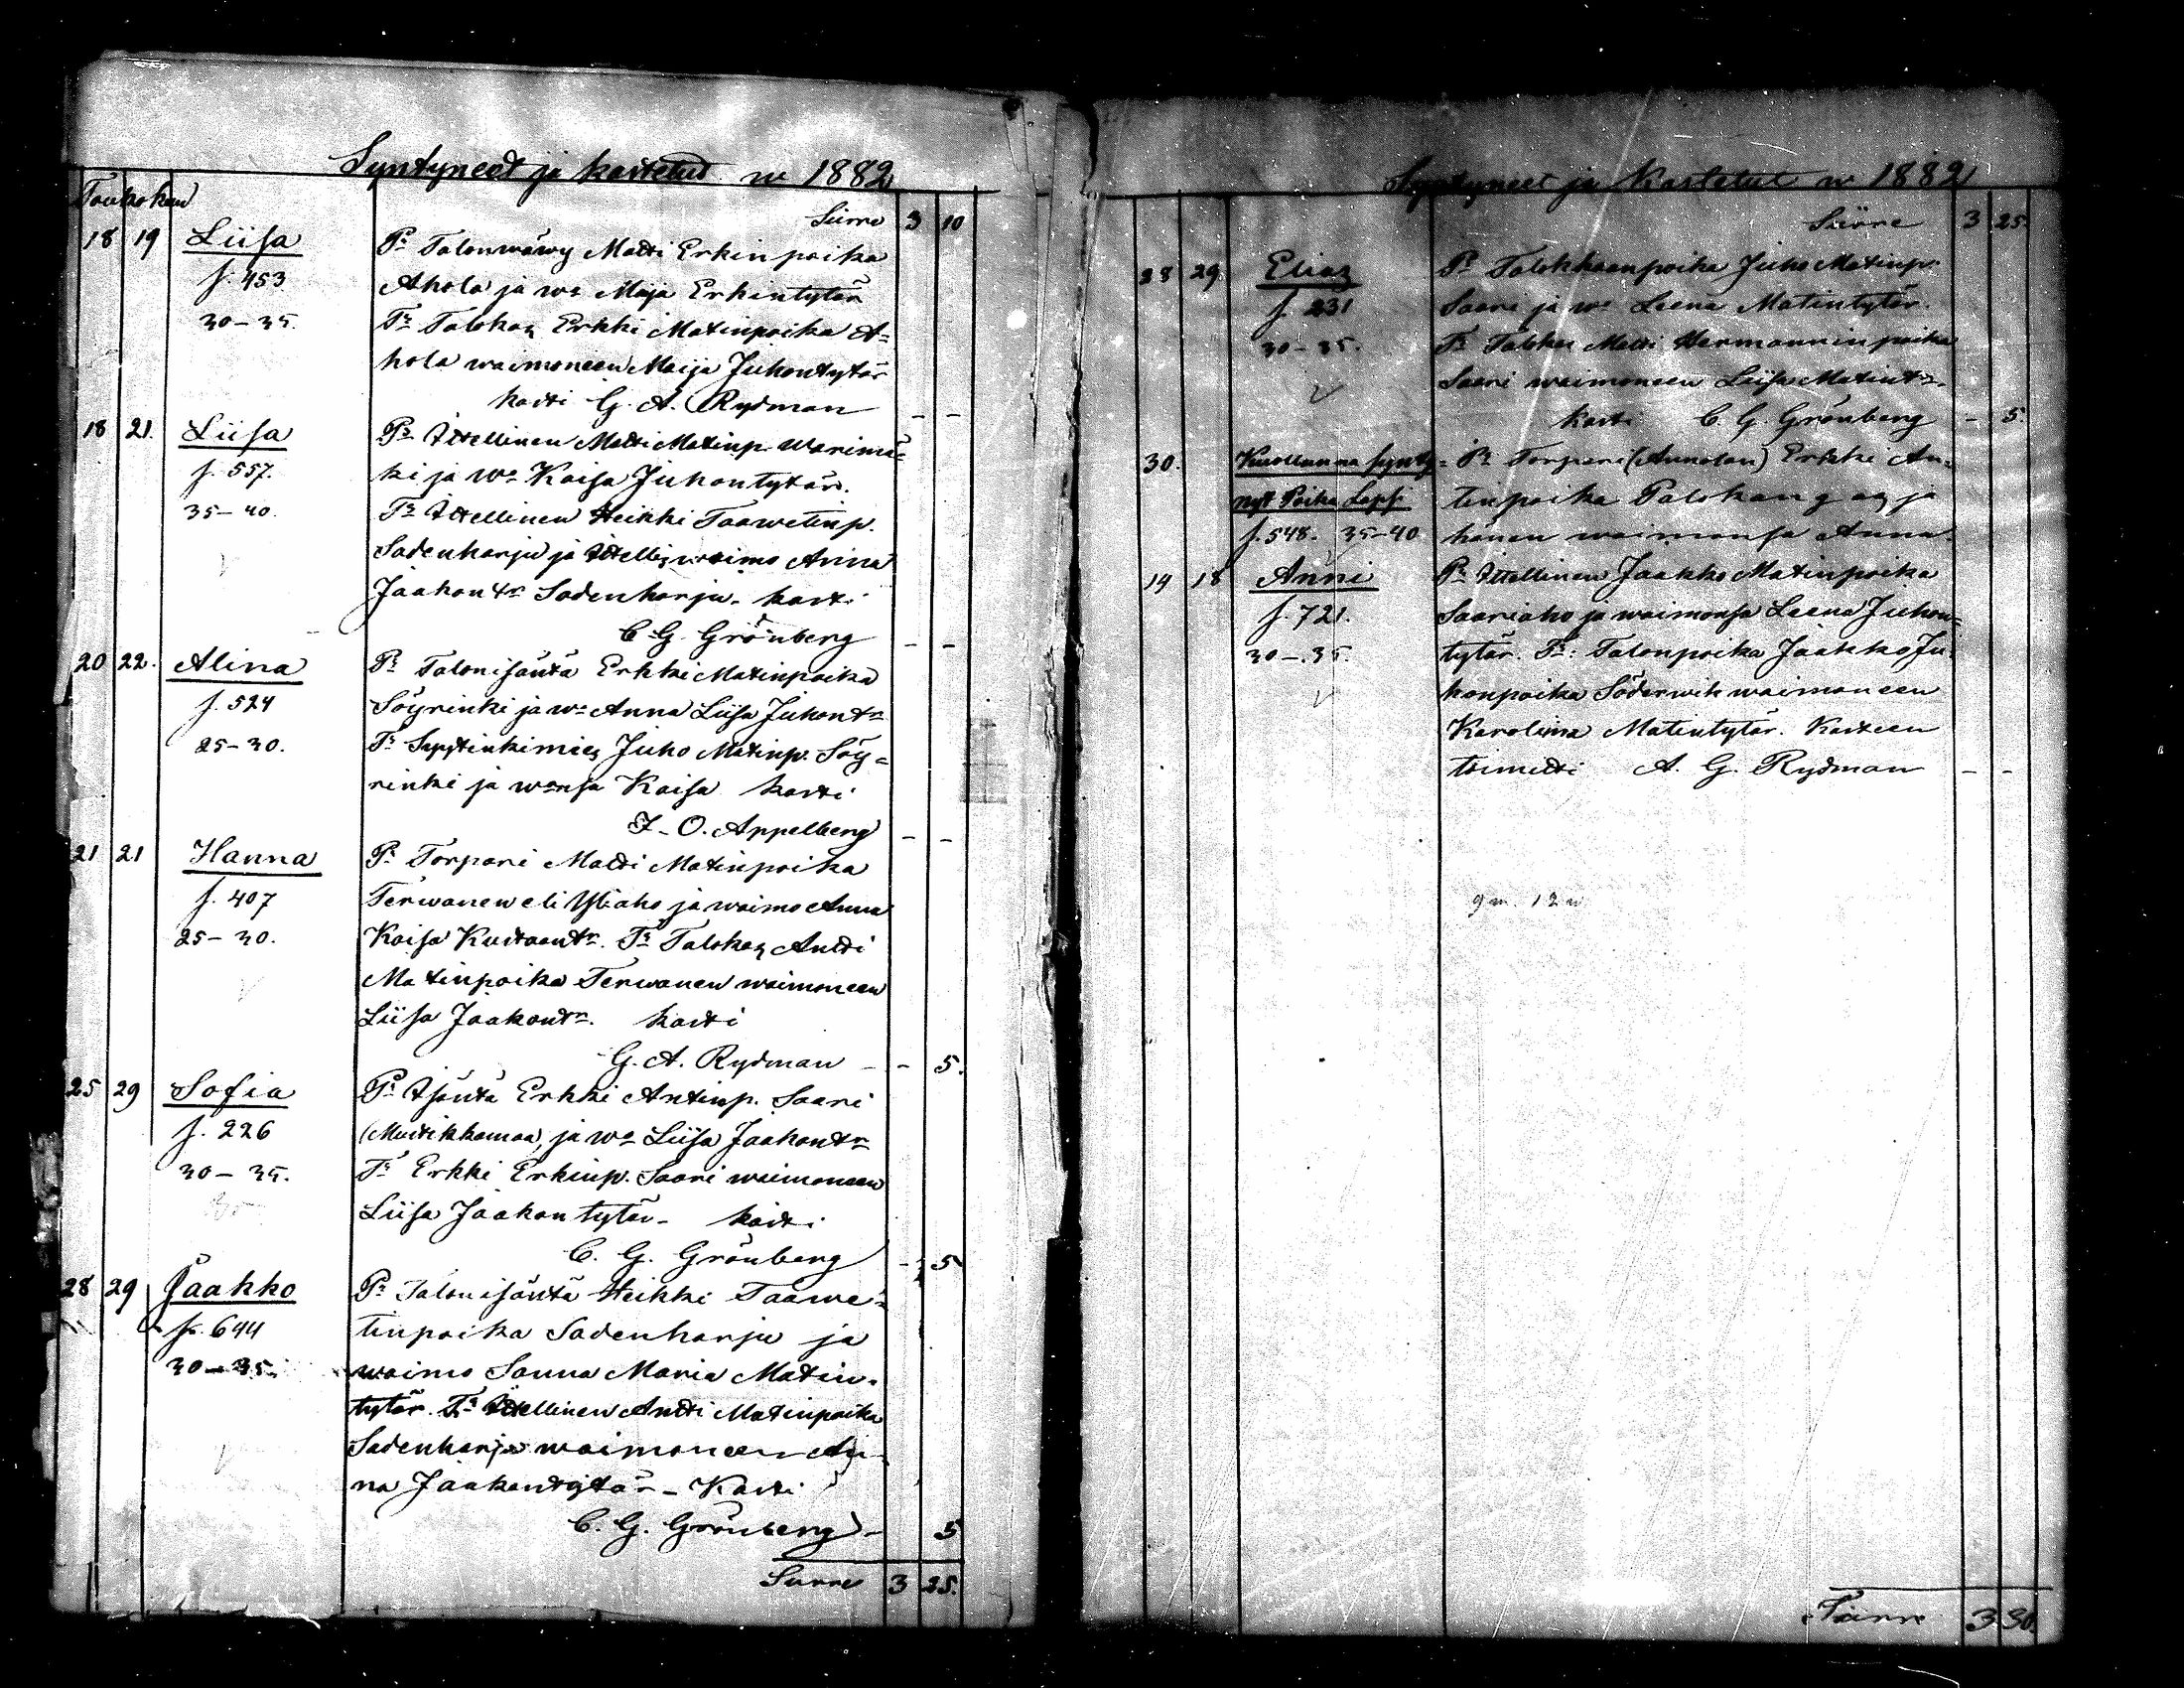 Syntyneet ja kastetut w 1882
Toukokuu
Siirre 3 10
18 19 Liisa Pr Talonwäwy Matti Erkinpoika
f. 453 Ahola ja wo Maja Erkintytär
30-35. Tr Talokas Erkki Matinpoika A=
hola waimoneen Maija Juhontytär
kasti G. A. Rydman - -
18 21. Liisa Pr Itellinen Matti Matinp. Warimä=
f. 557. ki ja wo Kaisa Juhontytär.
35-40. Tr Itellinen Heikki Taawetinp.
Sadenharju ja Itellis waimo Anna
Jaakontr Sadenharju. kasti
C. G. Grönberg - -
20 22. Alina Pr Talonisäntä Erkki Matinpoika
f. 524 Söyrinki ja wo Anna Liisa Juhontr
25-30. Tr Syytinkimies Juho Matinp. Söy=
rinki ja wonsa Kaisa kasti
J. O. Appelberg - -
21 21 Hanna Pr Torpari Matti Matinpoika
f. 407 Terwanen eli Yliaho ja waimo Anna
25-30. Kaisa Kustaantr. Tr Talokas Antti
Matinpoika Terwanen waimoneen
Liisa Jaakontr. kasti
G. A. Rydman - - 5.
25 29 Sofia Pr Isäntä Erkki Antinp. Saari
f. 226 (Mustikkamaa, ja wo Liisa Jaakontr
30-35. Tr Erkki Erkinp. Saari waimoneen
Liisa Jaakontytär - kasti
C. G. Grönberg - 5
28 29 Jaakko Pr Talonisäntä Heikki Taawe=
f. 644 tinpoika Sadenharju ja
30-35. waimo Sanna Maria Matin=
tytär. Tr Itellinen Antti Matinpoika
Sadenharju waimoneen An=
na Jaakontytär - Kasti
C. G. Grönberg - 5
Siirre 3 25.
Syntyneet ja Kastetut w 1882
Siirre 3 25.
28 29. Elias Pr Talokkaanpoika Juho Matinp.
f. 231 Saari ja wo Leena Matintytär.
30-35. Tr Talokas Matti Hermanninpoika
Saari waimoneen Liisa Matintr.
kasti C. G. Grönberg - 5.
30. Kuollunna synty= Pr Torpari (Annolan) Erkki An=
nyt Poika Lapsi tinpoika Palokangas ja
f. 548. 35-40 hänen waimonsa Anna.
14 18 Anni Pr Itellinen Jaakko Matinpoika
f. 721. Saariaho ja waimonsa Leena Juhon=
30-35. tytär. Tr: Talonpoika Jaakko Ju=
honpoika Söderwik waimoneen
Karolina Matintytär. Kasteen
toimitti A. G. Rydman - -
9 m. 12 n
Siirre 3 30.